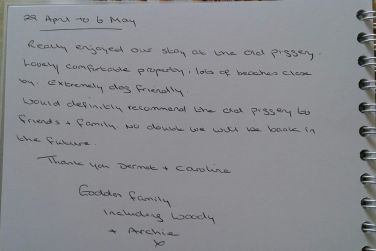 29 April to 6 May
Really enjoyed our stay at the old piggery.
Lovely comfortable property, lots of beaches close
by. Extremely dog friendly.
Would definitly recommend the old piggery to
friends + family. No doubt we will be back in
the future.
Thank you Dermot + Caroline
Godden family
including Woody
+ Archie
x